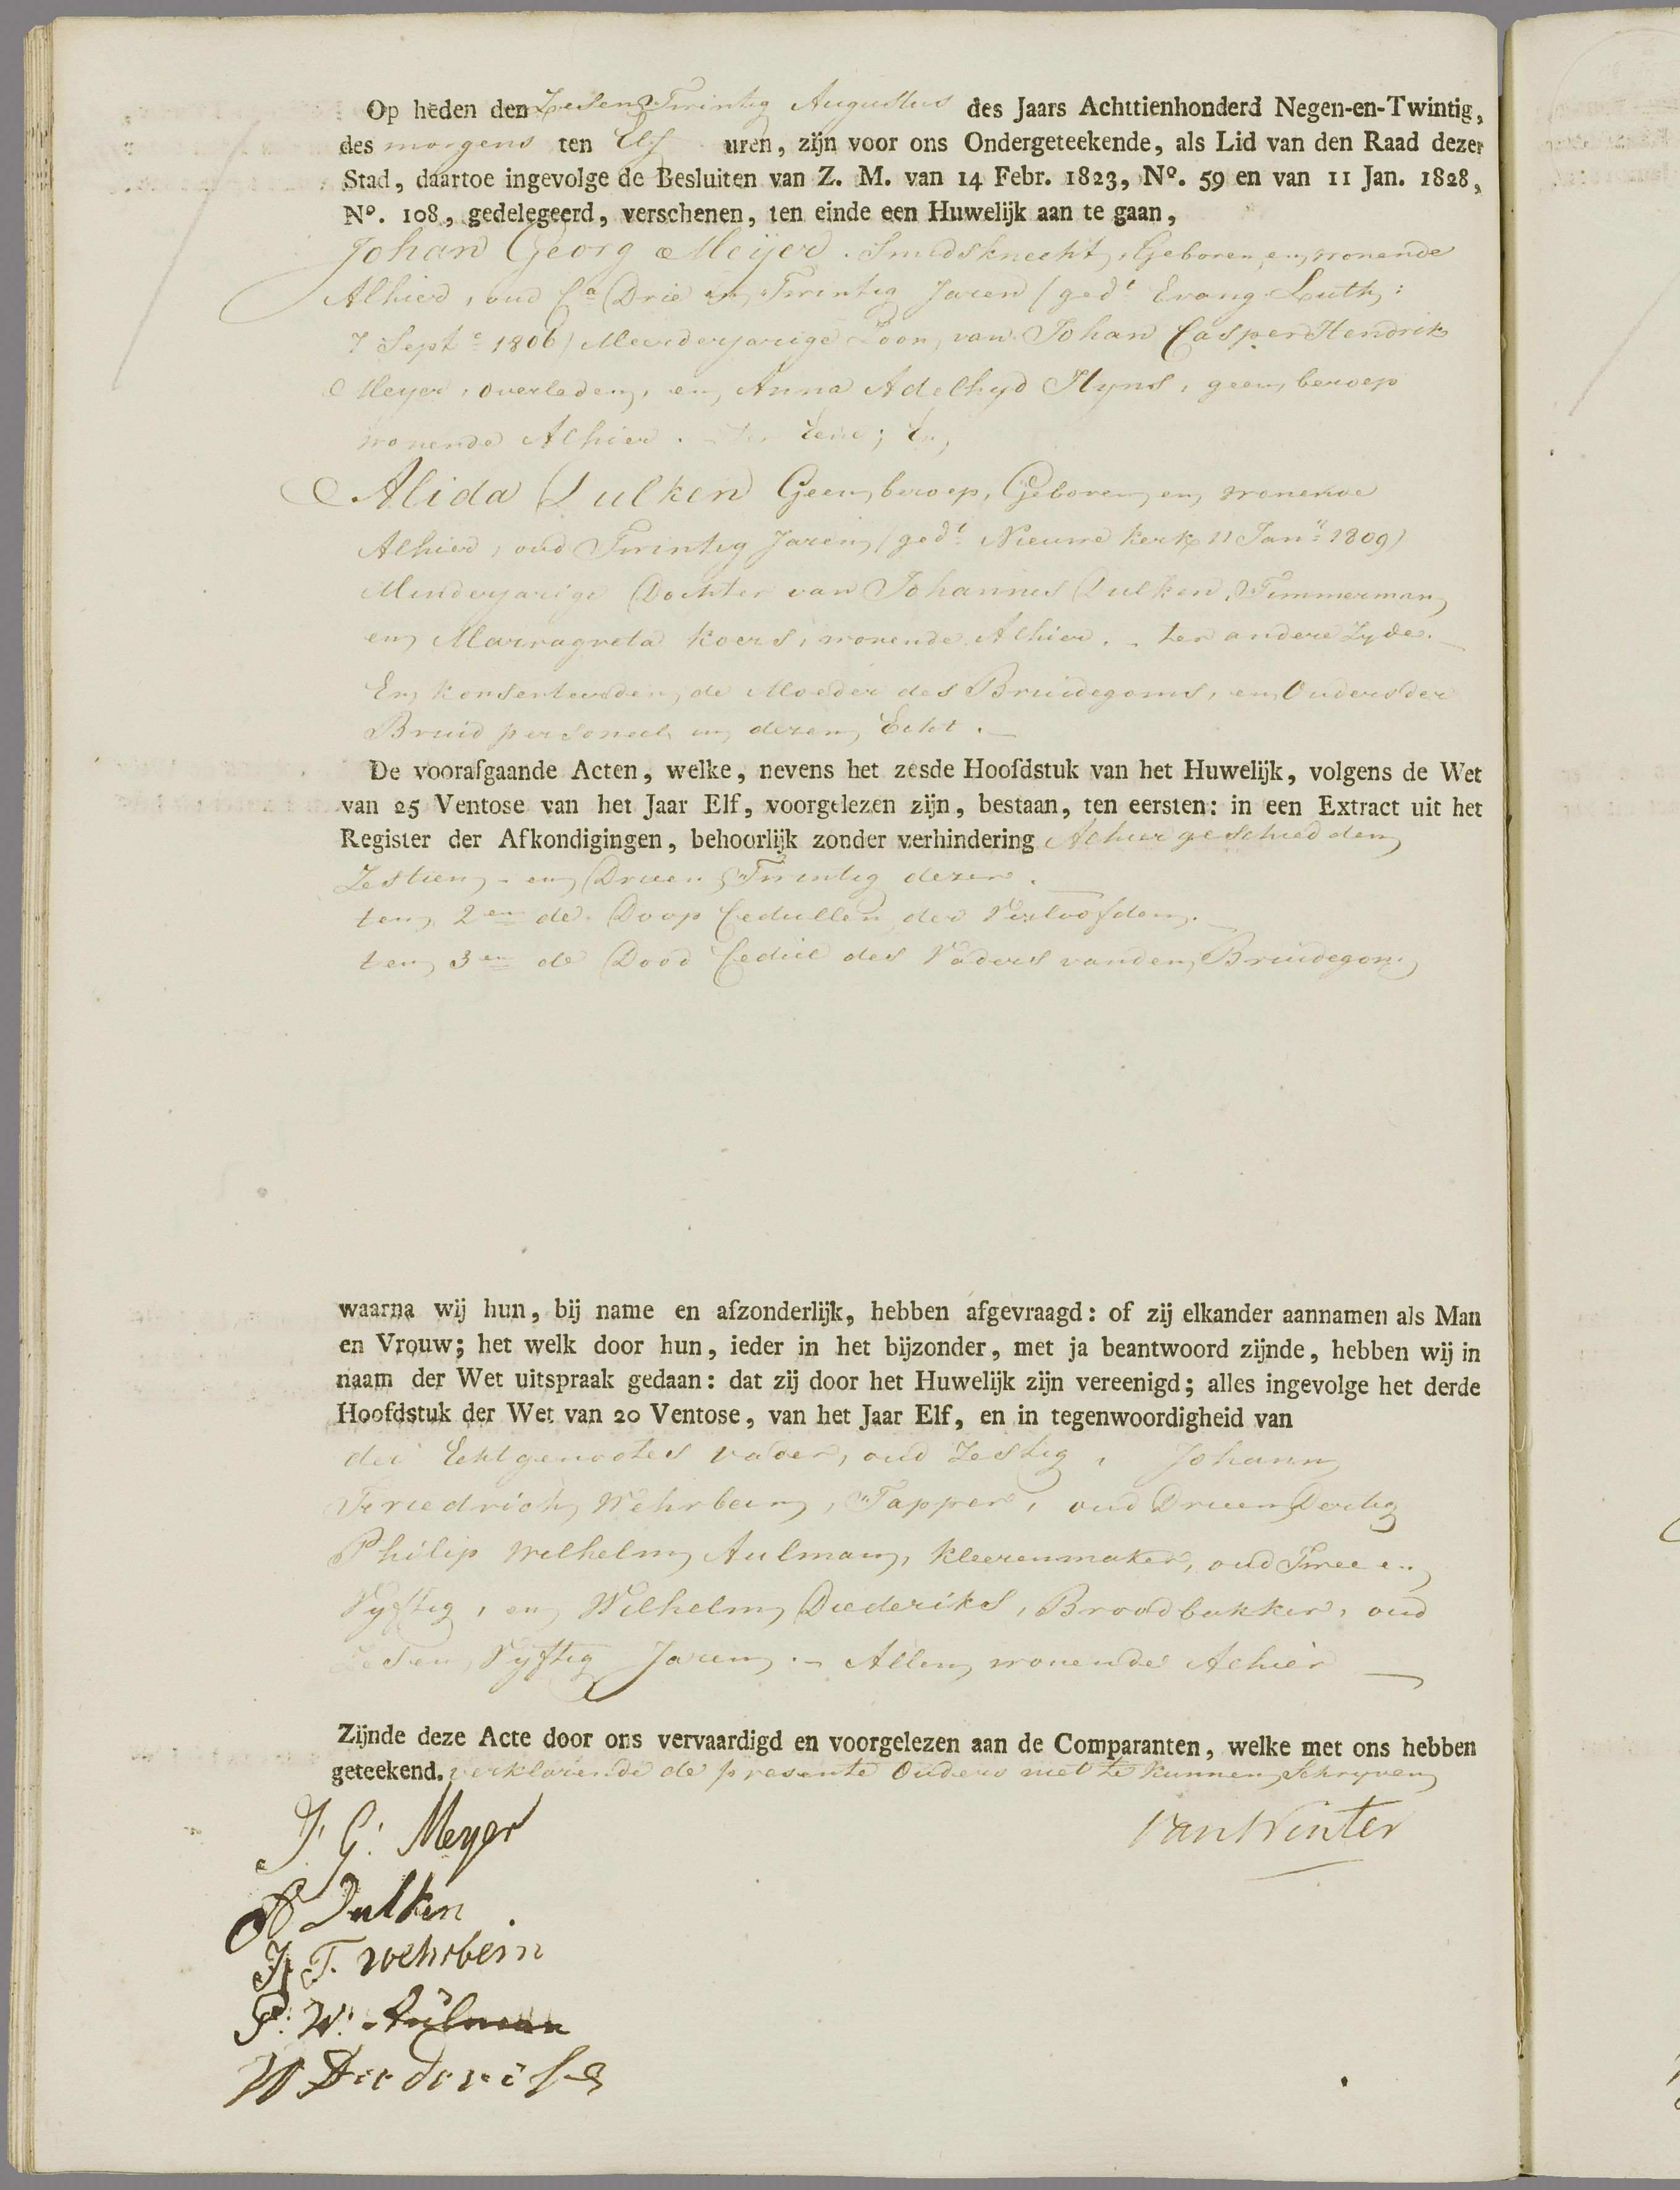 Op heden den Zesen Twintig Augustus des Jaars Achttienhonderd Negen-en-Twintig,
des morgens ten Elf uren, zijn voor ons Ondergeteekende, als Lid van den Raad dezer
Stad, daartoe ingevolge de Besluiten van Z. M. van 14 Febr. 1823, No. 59 en van 11 Jan. 1828,
No. 108, gedelegeerd, verschenen, ten einde een Huwelijk aan te gaan,
Johan Georg Meijer. Smidsknecht, Geboren en wonende
Alhier, oud Ca Drie en Twintig Jaren (gedt Evang. Luth:
7 Septe 1806) Meerderjarige Zoon van Johan Casper Hendrik
Meyer, overleden, en Anna Adelhyd Hyns, geen beroep
wonende Alhier. ter Eene; En
Alida Dulken Geen beroep, Geboren en wonende
Alhier, oud Twintig Jaren (gedt Nieuwe kerk 11 Jany 1809)
Minderjarige Dochter van Johannes Dulken, Timmerman,
en Marragreta Koers, wonende Alhier. - ter andere Zyde. -
En konsenteerden de Moeder des Bruidegoms, en Ouders der
Bruid personeel in dezen Echt. -
De voorafgaande Acten, welke, nevens het zesde Hoofdstuk van het Huwelijk, volgens de Wet
van 25 Ventose van het Jaar Elf, voorgelezen zijn, bestaan, ten eersten: in een Extract uit het
Register der Afkondigingen, behoorlijk zonder verhindering Alhier geschied den
Zestien - en Drieen Twintig dezer.
ten 2en de Doop Cedullen der Verloofden. -
ten 3en de Dood Cedul des Vaders van den Bruidegom
waarna wij hun, bij name en afzonderlijk, hebben afgevraagd: of zij elkander aannamen als Man
en Vrouw; het welk door hun, ieder in het bijzonder, met ja beantwoord zijnde, hebben wij in
naam der Wet uitspraak gedaan: dat zij door het Huwelijk zijn vereenigd; alles ingevolge het derde
Hoofdstuk der Wet van 20 Ventose, van het Jaar Elf, en in tegenwoordigheid van
der Echtgenootes vader, oud Zestig, Johann
Friedrich Wehrbein, Tapper, oud Drieen Dertig
Philip Wilhelm Aulman, kleerenmaker, oud Twee en
Vyftig, en Wilhelm Diederiks, Broodbakker, oud
Zesen Vyftig Jaren. - Allen wonende Alhier -
Zijnde deze Acte door ons vervaardigd en voorgelezen aan de Comparanten, welke met ons hebben
geteekend. verklarende de presente Ouders niet te kunnen Schryven
J. G. Meyer
van Winter
A Dulken
J. F. wehrbein
P: W: Aulman
W Diederiks